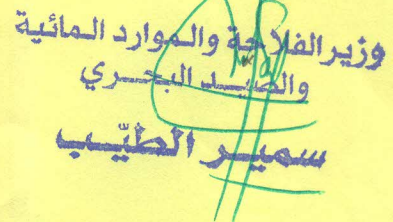 وزير الفلاحة والموارد المائية
والصيد البحري
سمير الطيّب